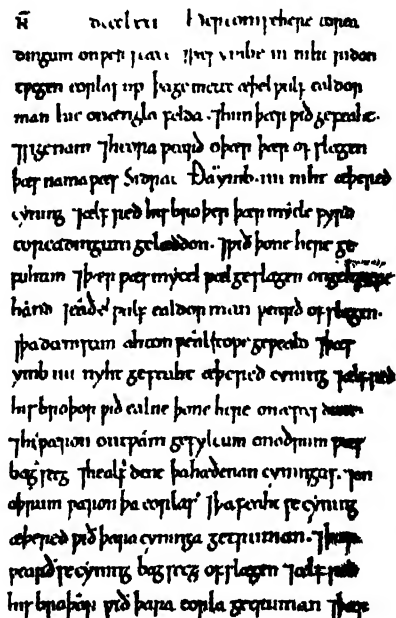 dccclxxi Her com se here to rea
dingum on west seaxe ⁊ þæs ymbe iii niht ridon
twegen eorlas up þa gemette æþelwulf ealdor
man hie on engla felda. ⁊ him þær wið gefeaht.
⁊ sige nam ⁊ heora wearð oþær þær ofslægen
þæs nama wæs Sidrac. Ða ymb .iiii. niht æþered
cyning ⁊ ælfred his broþer þær micle fyrd
to readingum gelæddon. ⁊ wið þone here ge
fuhtun ⁊ þær wæs mycel wæl geslagen on
hand ⁊ ealdorman wearð ofslægen.
⁊ þa ahton wælstowe geweald ⁊ þæs
ymb iiii nyht gefeaht æþered cyning ⁊ ælfred
his broþor wið ealne þone here on
⁊ hi wæron on twam gefylcum on oðrum wæs
bagsecg ⁊ healfdene þa hæðenan cyningas. ⁊ on
oþrum wæron þa eorlas ⁊ þa feaht se cyning
æþered wið þara cyninga getruman. ⁊ þær
wearð se cyning bagsecg ofslægen ⁊ ælfred
his broþor wið þara eorla getruman ⁊ þær